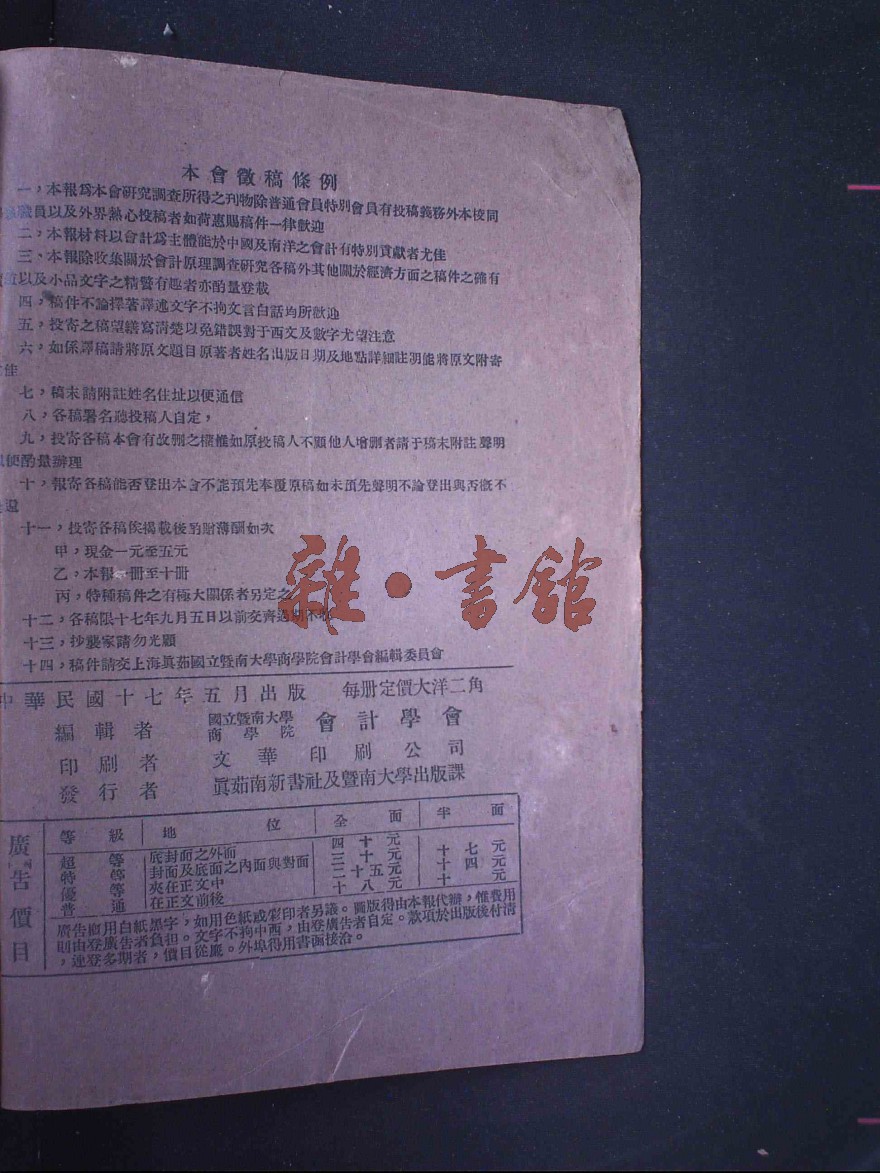 本會徵稿條例
一，本報爲本會研究調查所得之刊物除普通會員特別會員有投稿義務外本校同
職員以及外界熱心投稿者如荷惠賜稿件一律歡迎
二，本報材料以會計爲主體能於中國及南洋之會計有特別貢獻者尤佳
三、本報除收集關於會計原理調查研究各稿外其他關於經濟方面之稿件之確有
以及小品文字之精警有趣者亦酌量登載
四，稿件不論撰著譯述文字不拘文言白話均所歡迎
五，投寄之稿望繕寫清楚以免錯誤對于西文及數字尤望注意
六，如係譯稿請將原文題目原著者姓名出版日期及地點詳細註明能將原文附寄
佳
七，稿末請附註姓名住址以便通信
八，各稿署名聽投稿人自定，
九，投寄各稿本會有故刪之權惟如原投稿人不願他人增刪者請于稿末附註聲明
便酌量辦理
十，報寄各稿能否登出本會不能預先奉覆原稿如未預先聲明不論登出與否概不
還
十一，投寄各稿俟揭載後酌酧薄酬如次
甲，現金一元至五元
乙，本報一冊至十冊
丙，特種稿件之有極大關係者另定之
十二，各稿限十七年九月五日以前交齊過期不收
十三，抄襲家請勿光顧
十四，稿件請交上海眞茹國立暨南大學商學院會計學會編輯委員會
雜·書館
中華民國十七年五月出版 每册定價大洋二角
編輯者 國立暨南大學商學院 會計學會
印刷者 文華印刷公司
發行者 眞茹南新書社及暨南大學出版課
廣告價目
等級 地位 全面 半面
超等 底封面之外面 四十元
特等 封面及底面之內面與對面 三十元 十七元
優等 夾在正文中 二十五元 十四元
普通 在正文前後 十八元 十元
廣告概用白紙黑字，如用色紙或彩印者另議。圖版得由本報代辦，惟費用
則由登廣告者負担。文字不拘中西，由登廣告者自定。款項於出版後付清
，連登多期者，價目從廉。外埠得用書函接洽。